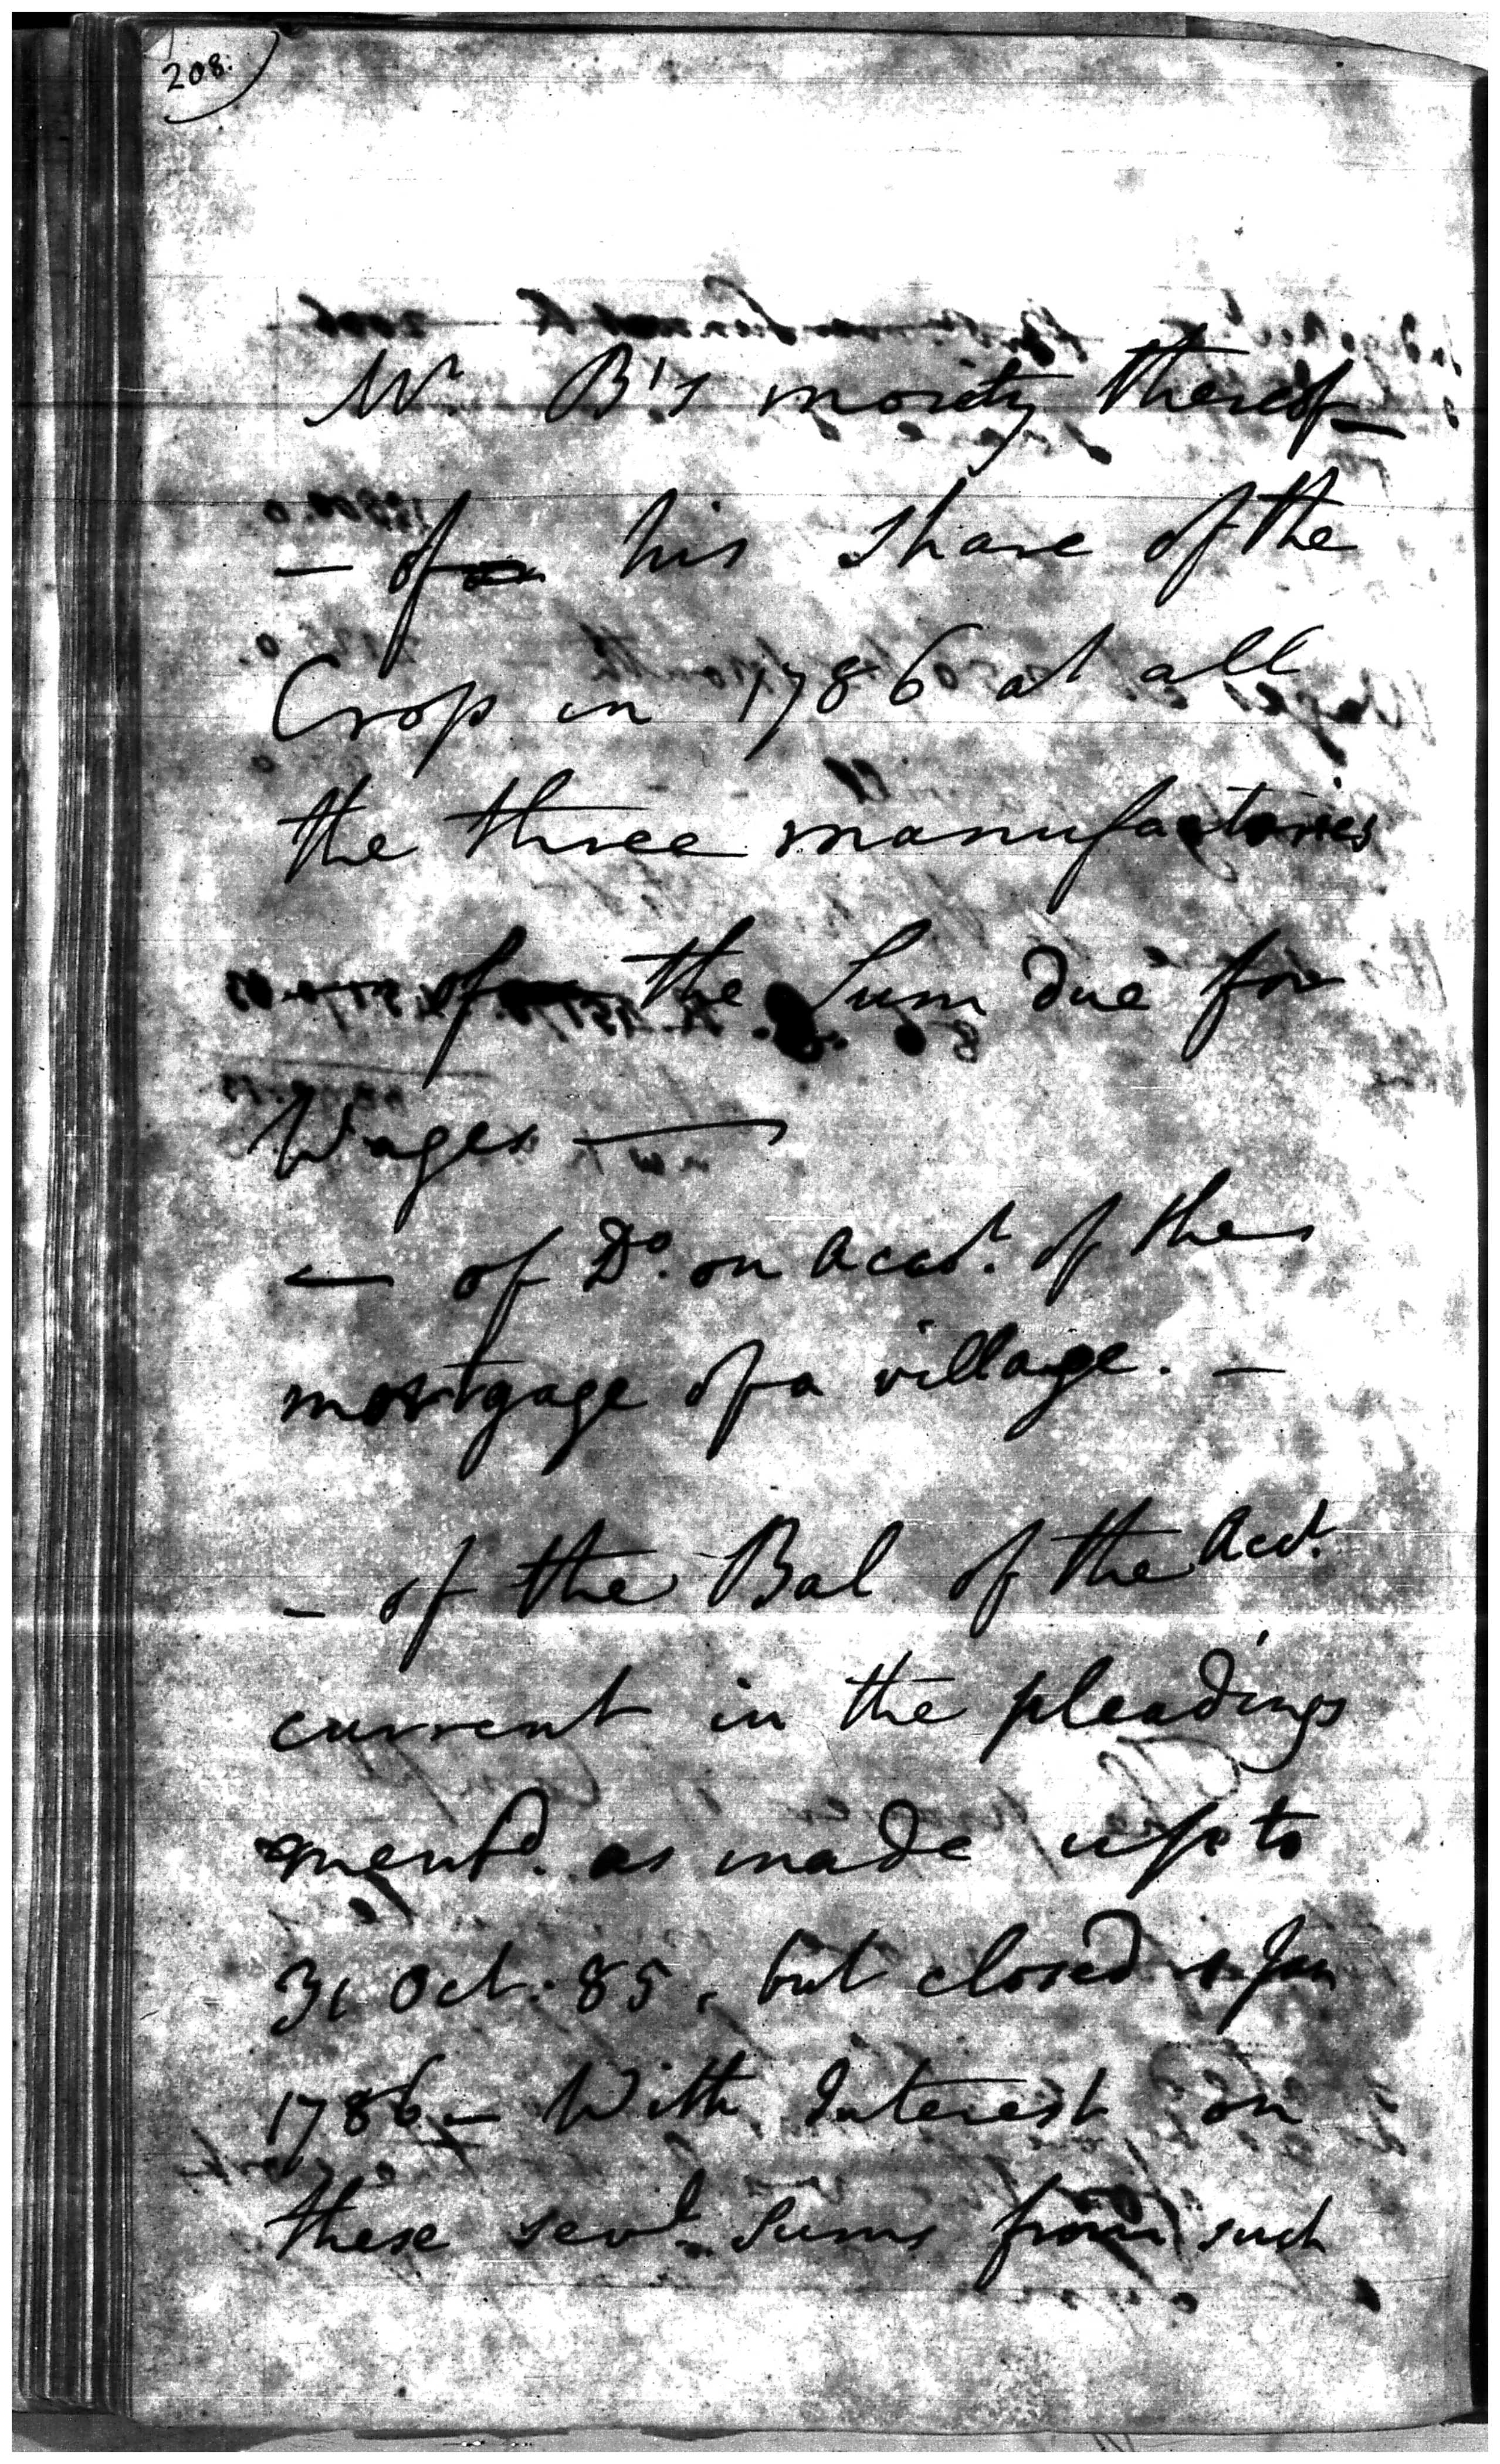 208.
Mr B's moiety thereof —
— of his share of the
Crop in 1786 at all
the three manufactories
— of the Sum due for
Wages —
— of Do. on Acct. of the
mortgage of a village. —
— of the Bal of the Acct.
current in the pleadings
mentd. as made up to
31 Oct. 85, but closed 1 Jan
1786 — With Interest on
these sevl. Sums from such